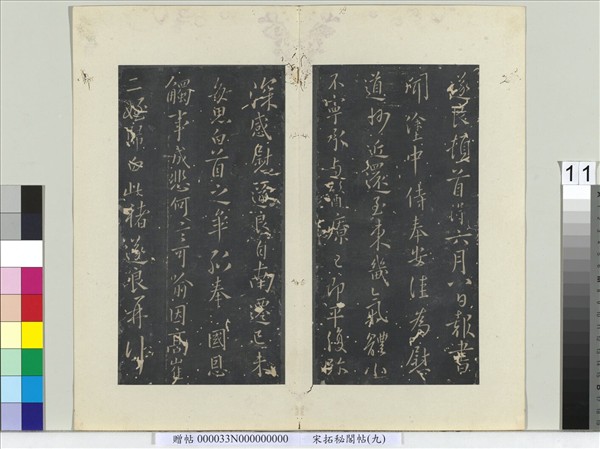 遂良頓首得六月八日報書
聞塗中侍奉安佳為慰
道近還至東畿氣體小
不寧承与藥療已即平復弥
深感慰遂良自南遷已來
每思白首之年孤奉國恩
觸事成悲何言可喻因高崔
二姪白此褚遂良再
11
贈帖 000033N000000000 宋拓秘閣帖(九)